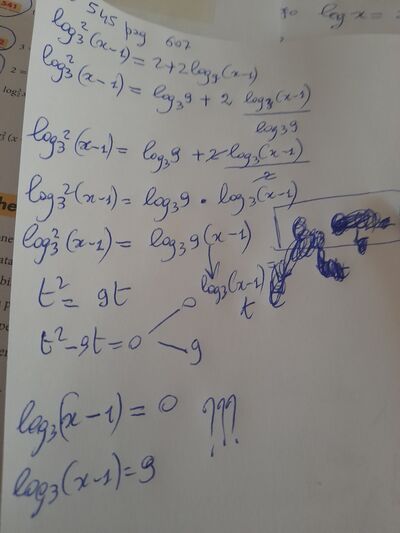 545 pag 607
log₃²(x-1) = 2+2log₉(x-1)
log₃²(x-1) = log₃9 + 2 log₃(x-1)/log₃9
log₃²(x-1) = log₃9 + 2 log₃(x-1)/2
log₃²(x-1) = log₃9 • log₃(x-1)
log₃²(x-1) = log₃9(x-1)
log₃(x-1)
t
t² = 9t
t²-9t=0
0
9
log₃(x-1) = 0
log₃(x-1)=9
???
log x =
541